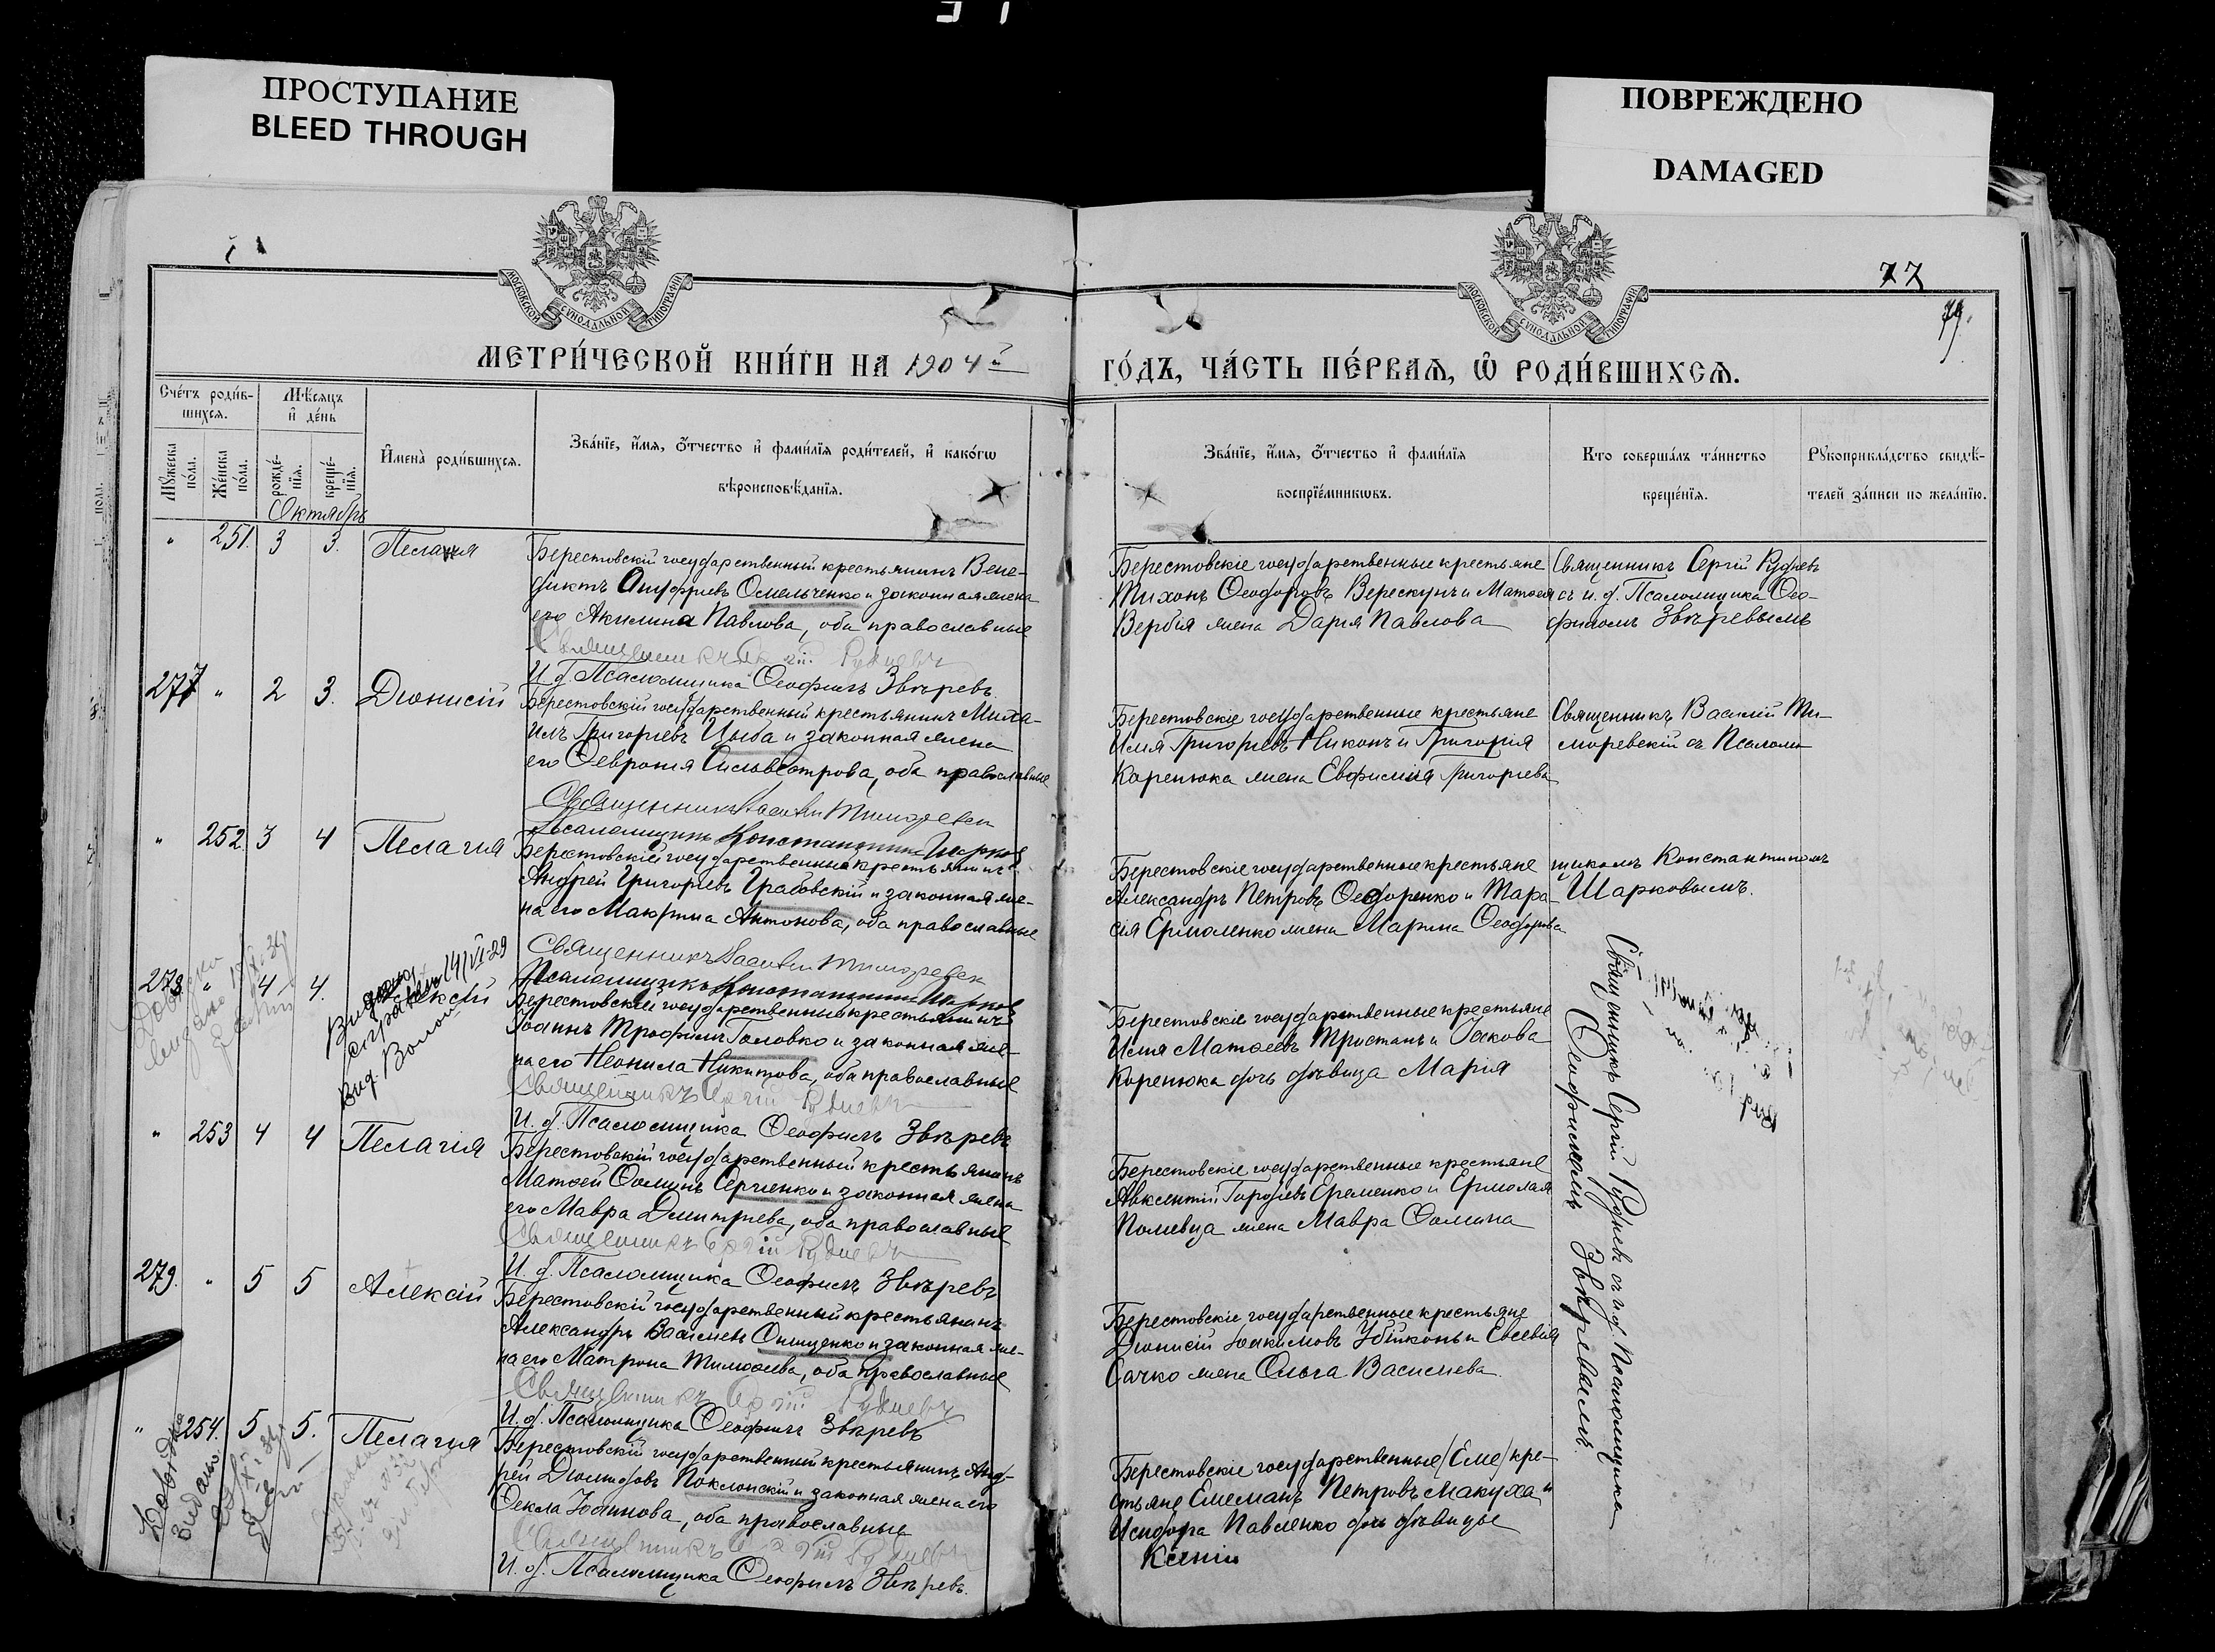 ПРОСТУПАНИЕ
BLEED THROUGH
ПОВРЕЖДЕНО
DAMAGED
МОСКОВСКОЙ СУНОДАЛЬНОЙ ТИПОГРАФІИ
МОСКОВСКОЙ СУНОДАЛЬНОЙ ТИПОГРАФІИ
77
79.
МЕТРИ́ЧЕСКОЙ КНИ́ГИ НА 1904 й
ГО́ДЪ, ЧА́СТЬ ПЕ́РВАѦ, Ѽ РОДИ́ВШИХСѦ.
Сче́тъ роди́в-
шихсѧ.
Мѣ́сяцъ
и҆ де́нь
Мꙋ́жеска по́ла.
Же́нска по́ла.
рожде́-
нїѧ.
креще́-
нїѧ.
И҆мена̀ роди́вшихсѧ.
Зва́нїе, и҆́мѧ, ѻ҆́тчество и҆ фами́лїѧ роди́телей, и҆ како́гѡ
вѣроисповѣ́данїѧ.
Зва́нїе, и҆́мѧ, ѻ҆́тчество и҆ фами́лїѧ
воспрїе́мникѡвъ.
Кто соверша́лъ та́инство
креще́нїѧ.
Рꙋкоприкла́дство свидѣ́-
телей за́писи по жела́нїю.
Октябрь
" 251. 3 3. Пелагія
Берестовскій государственный крестьянинъ Вене-
диктъ Онуфріевъ Омельченко и законная жена
его Акилина Павлова, оба православные
Священникъ Сергій Рудневъ
И. д. Псаломщика Ѳеофилъ Звѣревъ.
Берестовскіе государственные крестьяне
Тихонъ Ѳеодоровъ Верескунъ и Матѳея
Вербія жена Дарія Павлова
Священникъ Сергій Рудневъ
съ и. д. Псаломщика Ѳео-
филомъ Звѣревымъ
277 " 2 3. Діонисій
Берестовскій государственный крестьянинъ Миха-
илъ Григорьевъ Цыба и законная жена
его Ѳевронія Сильвестрова, оба православные
Священникъ Василій Тиморевскій
Псаломщикъ Константинъ Шарковъ
Берестовскіе государственные крестьяне
Илія Григорьевъ Никонъ и Григорія
Коренюка жена Евфимія Григорьева
Священникъ Василій Ти-
моревскій съ Псалом-
" 252. 3 4 Пелагія
Берестовскій государственный крестьянинъ
Андрей Григорьевъ Грабовскій и законная же-
на его Макрина Антонова, оба православные
Священникъ Василій Тиморевскій
Псаломщикъ Константинъ Шарковъ
Берестовскіе государственные крестьяне
Александръ Петровъ Ѳедоренко и Тара-
сія Ермоленко жена Марина Ѳеодорова
щикомъ Константиномъ
Шарковымъ.
278 " 4 4. Алексій
Берестовскій государственный крестьянинъ
Іоаннъ Трофимъ Головко и законная же-
на его Неонила Никитова, оба православные
Священникъ Сергій Рудневъ
И. д. Псаломщика Ѳеофилъ Звѣревъ
Берестовскіе государственные крестьяне
Илія Матѳеевъ Тристанъ и Іакова
Коренюка дочь дѣвица Марія
Священникъ Сергій Рудневъ съ и. д. Псаломщика
Ѳеофиломъ Звѣревымъ.
" 253 4 4 Пелагія
Берестовскій государственный крестьянинъ
Матѳей Ѳоминъ Сергіенко и законная жена
его Мавра Димитріева, оба православные
Священникъ Сергій Рудневъ
И. д. Псаломщика Ѳеофилъ Звѣревъ
Берестовскіе государственные крестьяне
Авксентій Гордіевъ Еременко и Ермолая
Полевца жена Мавра Ѳомина
279. " 5 5 Алексій
Берестовскій государственный крестьянинъ
Александръ Васильевъ Онищенко и законная же-
на его Матрона Тимоѳеева, оба православные
Священникъ Сергій Рудневъ
И. д. Псаломщика Ѳеофилъ Звѣревъ
Берестовскіе государственные крестьяне
Діонисій Іоакимовъ Убійконь и Евсевія
Сачко жена Ольга Васильева.
" 254. 5 5. Пелагія
Берестовскій государственный крестьянинъ Анд-
рей Діомидовъ Поклонскій и законная жена его
Ѳекла Іоаннова, оба православные
Священникъ Сергій Рудневъ
И. д. Псаломщика Ѳеофилъ Звѣревъ.
Берестовскіе государственные /Еме/ кре-
стьяне Емеліанъ Петровъ Макуха и
Исидора Павленко дочь дѣвица
Ксенія
Довідка
видано